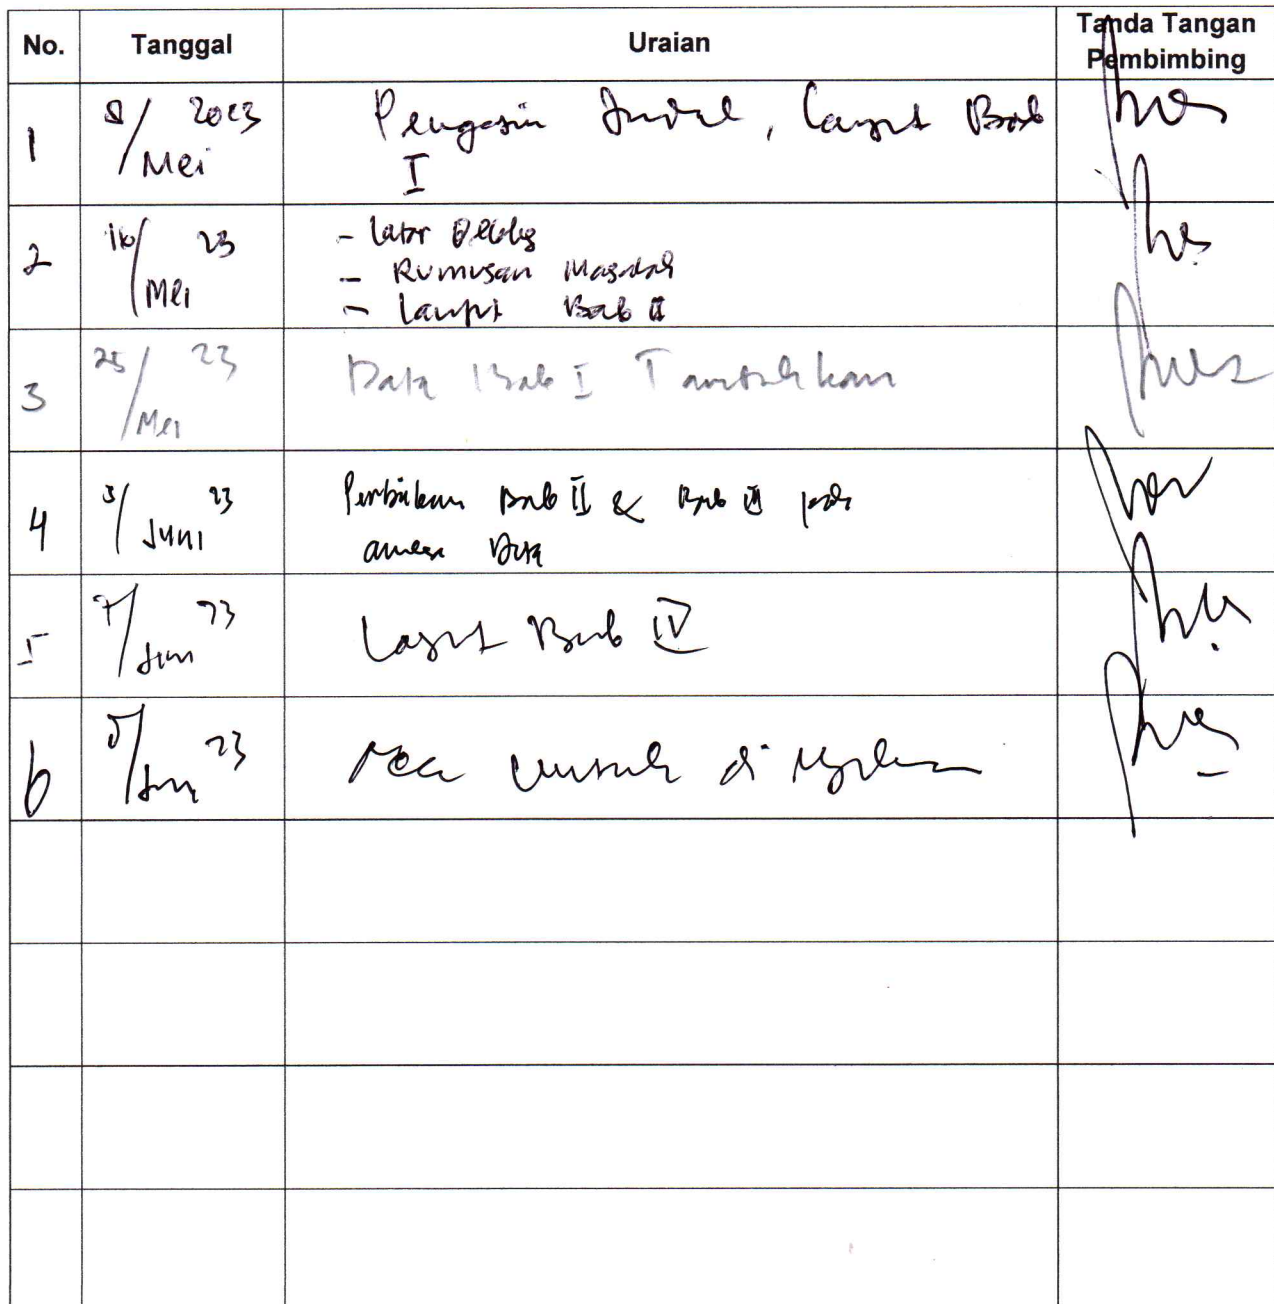 No. Tanggal Uraian Tanda Tangan
Pembimbing
1 8/Mei 2023 Pengajuan Judul, Lanjut Bab
I
2 16/Mei 23 - Latar Belakang
- Rumusan Masalah
- Lanjut Bab II
3 25/Mei 23 Data Bab I Tambahkan
4 3/Juni 23 Perbaikan Bab II & Bab III pada
Data
5 7/Juni 23 Lanjut Bab IV
6 /Juni 23 Acc untuk di